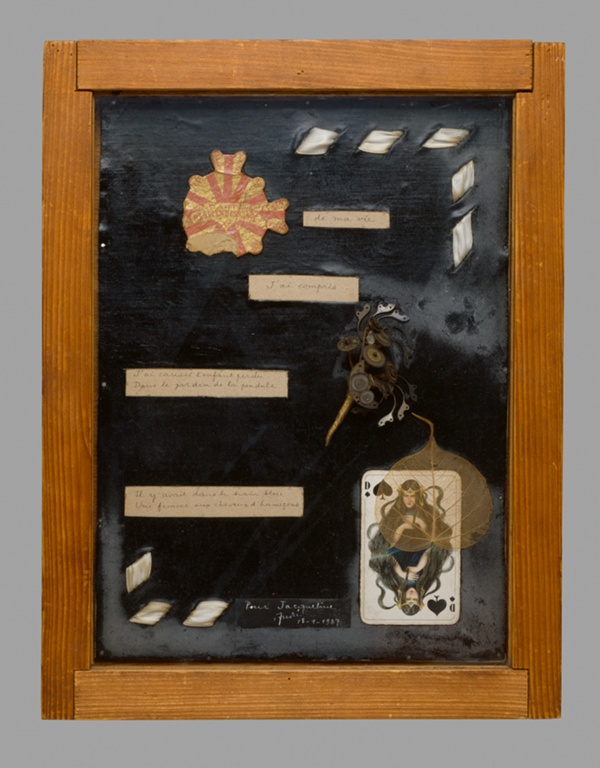 de ma vie
J'ai compris
J'ai caressé l'enfant perdu
Dans le jardin de la pendule
Il y avait dans le train bleu
Une femme aux cheveux d'hameçons
D
Pour Jacqueline
Jeudi
1937
D